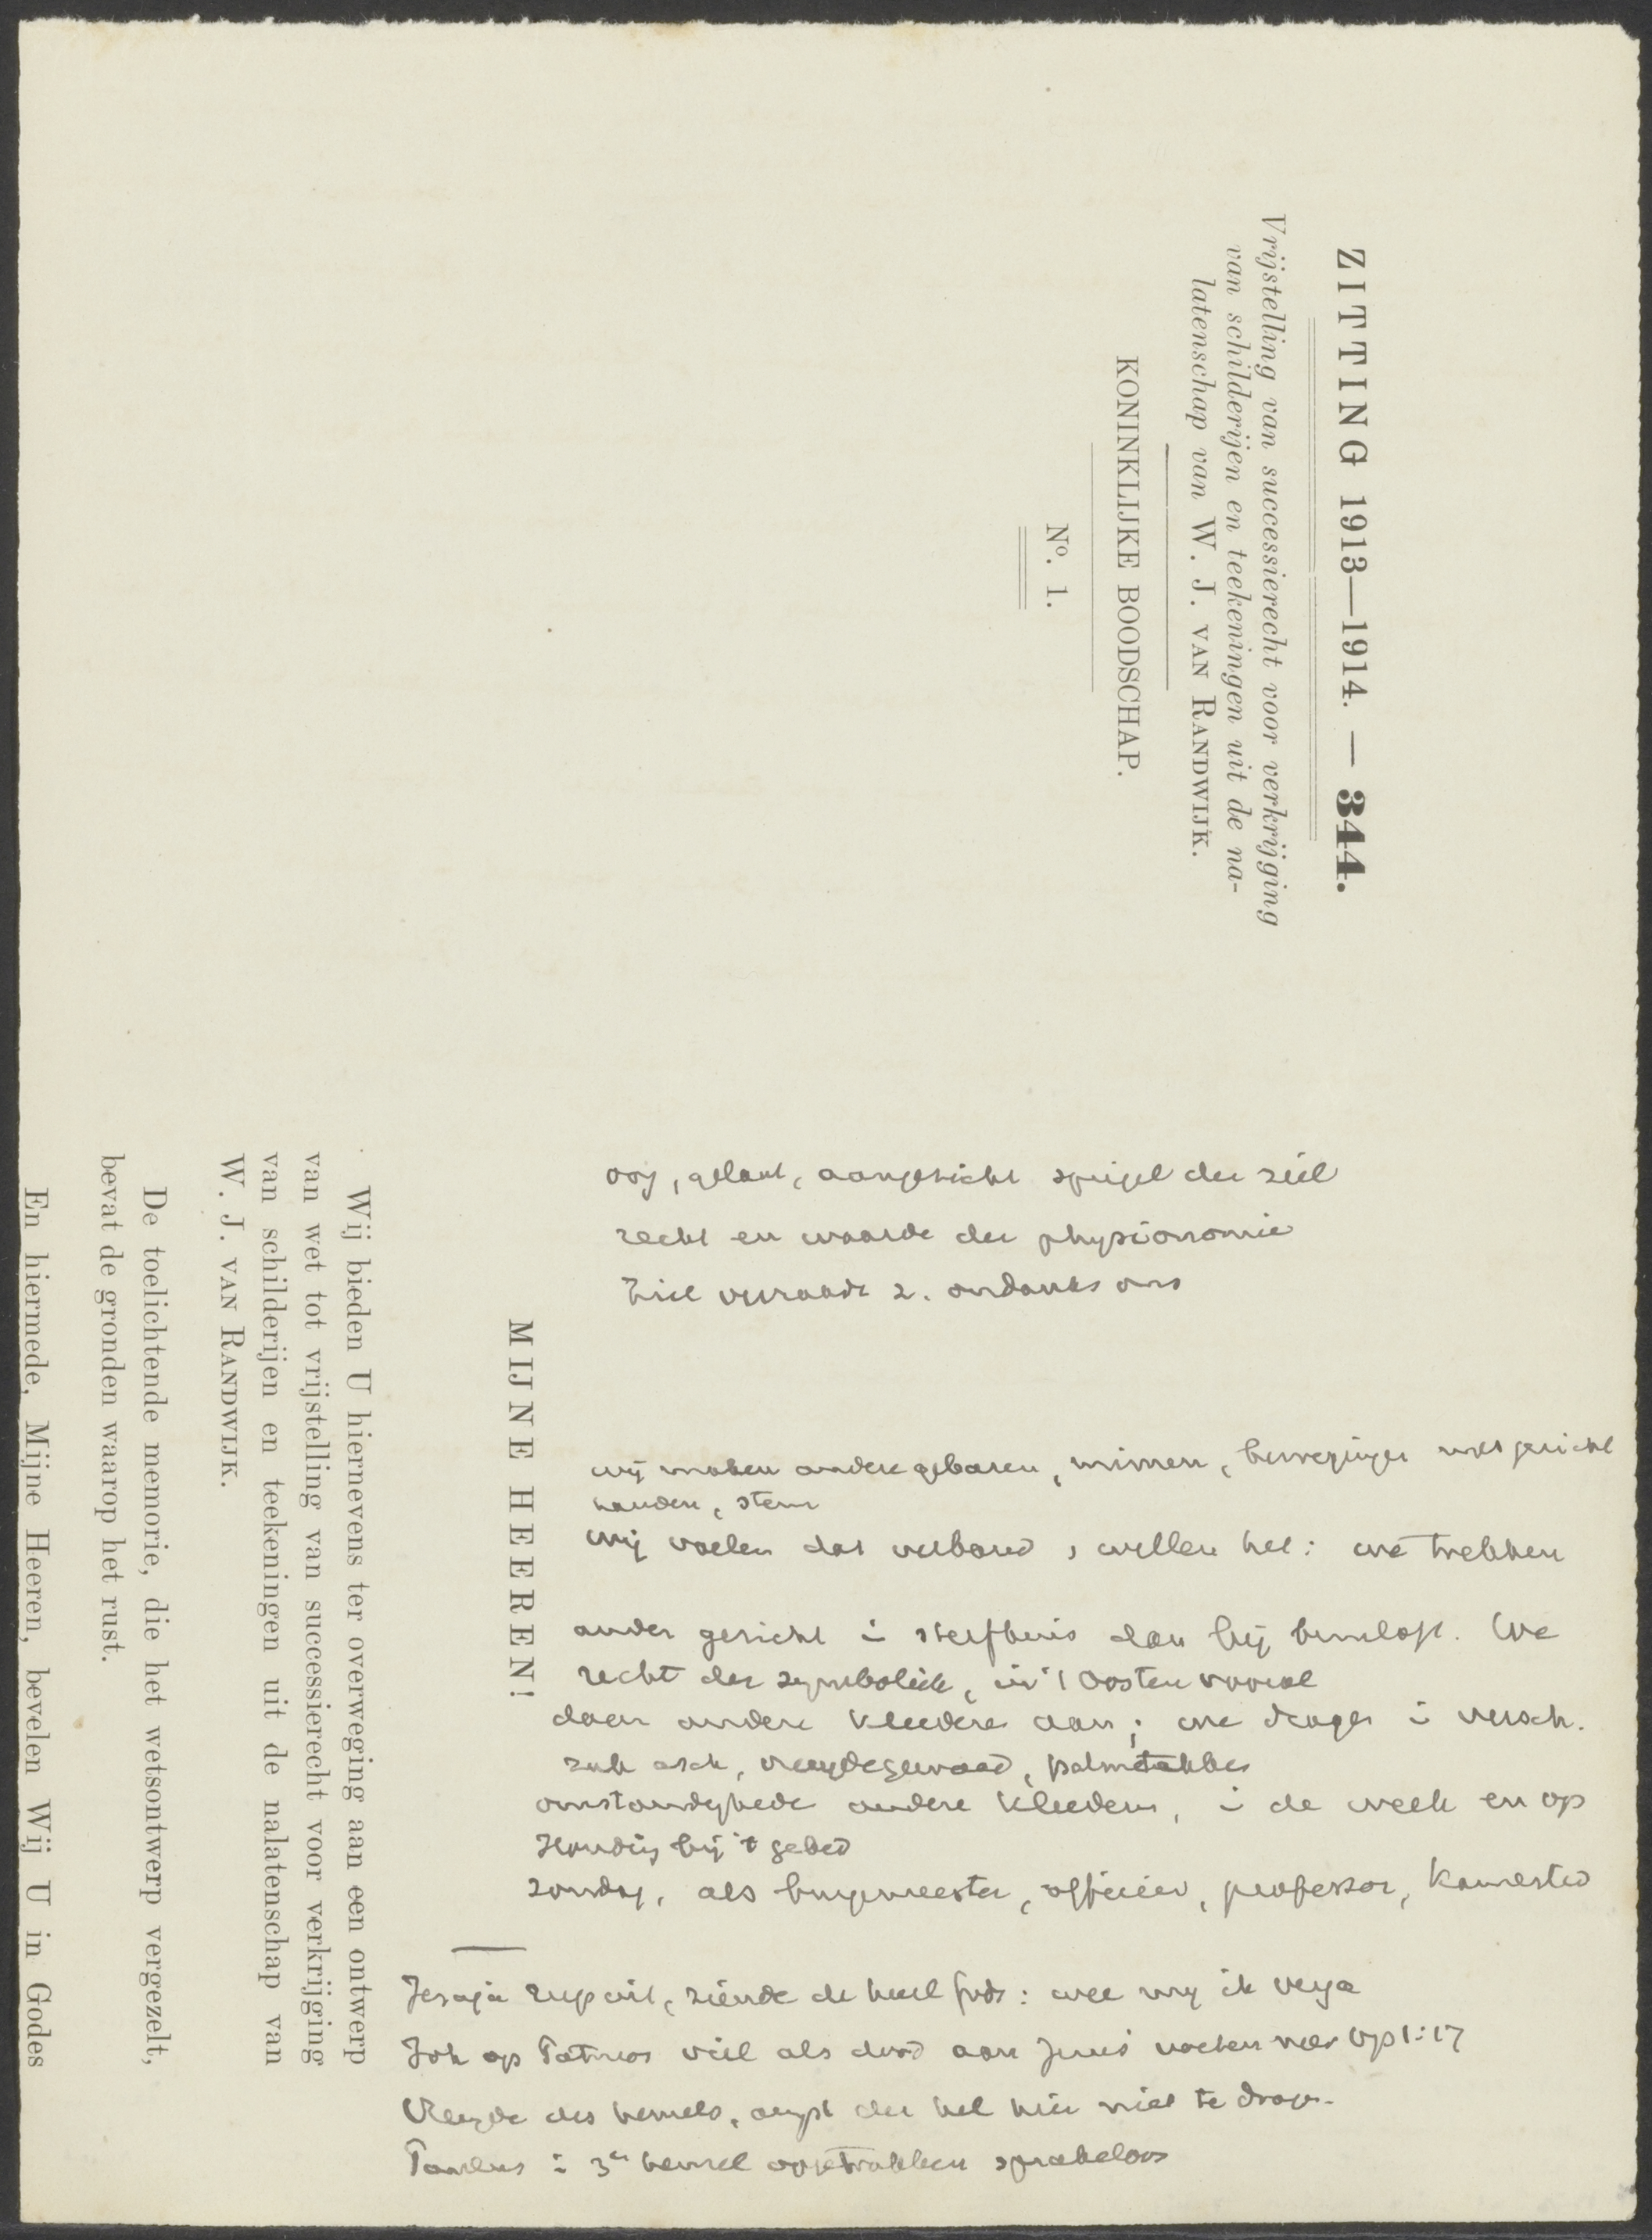 ZITTING 1913—1914. — 344.
Vrijstelling van successierecht voor verkrijging
van schilderijen en teekeningen uit de na-
latenschap van W. J. VAN RANDWIJK.
KONINKLIJKE BOODSCHAP.
No. 1.
MIJNE HEEREN!
Wij bieden U hiernevens ter overweging aan een ontwerp
van wet tot vrijstelling van successierecht voor verkrijging
van schilderijen en teekeningen uit de nalatenschap van
W. J. VAN RANDWIJK.
De toelichtende memorie, die het wetsontwerp vergezelt,
bevat de gronden waarop het rust.
En hiermede, Mijne Heeren, bevelen Wij U in Godes
oog, gelaat, aangezicht spiegel der ziel
recht en waarde der physionomie
Ziel verraadt z. ondanks ons
wij maken andere gebaren, mimen, bewegingen met gezicht
handen, stem
wij voelen dat verband, willen het: we trekken
ander gezicht i sterfhuis dan bij bruiloft. We
recht der symboliek, in 't Oosten vooral
doen andere kleederen aan; we dragen i versch.
zak asch, vreugdegewaad, palmtakken
omstandigheden andere kleederen, i de week en op
Houding bij 't gebed
zondag, als burgemeester, officier, professor, kamerlid
Jesaja riep uit, ziende de heerl Gods: wee mij ik verga
Joh op Patmos viel als dood aan Jezus' voeten neer Op 1:17
Vreugde des hemels, angst der hel hier niet te dragen
Paulus i 3en hemel opgetrokken sprakeloos